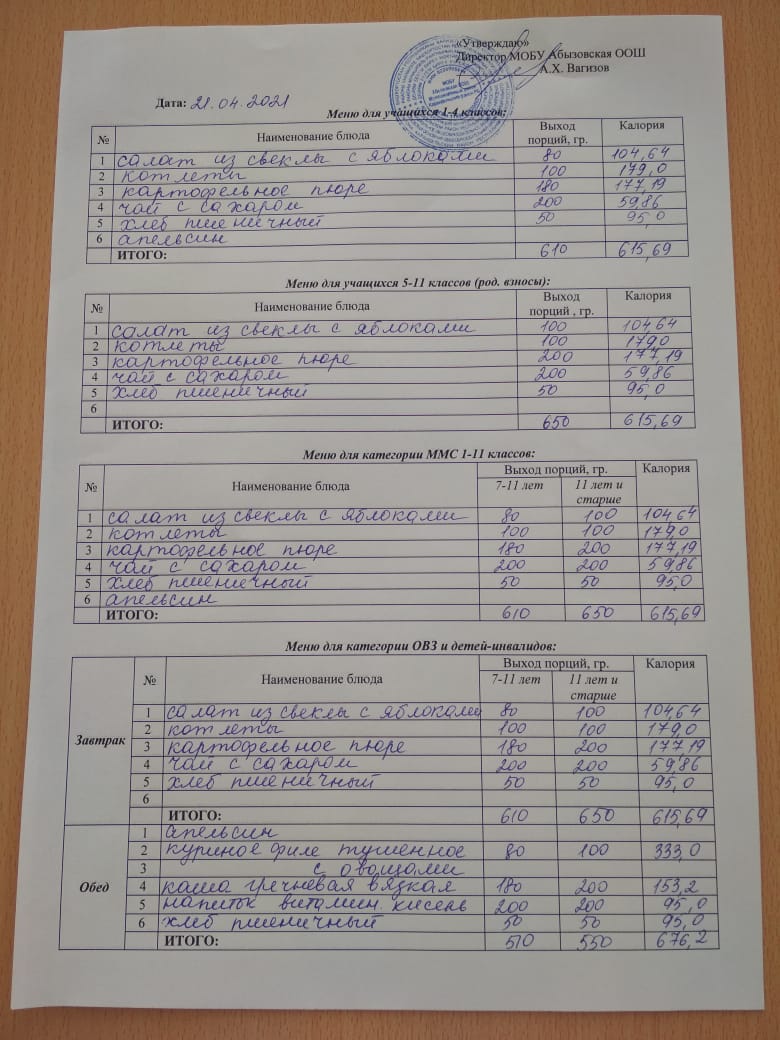 «Утверждаю»
Директор МОБУ Абызовская ООШ
А.Х. Вагизов
Дата: 21.04.2021
Меню для учащихся 1-4 классов:
№ Наименование блюда Выход порций, гр. Калория
1 салат из свеклы с яблоками 80 104,64
2 котлеты 100 179,0
3 картофельное пюре 180 177,19
4 чай с сахаром 200 59,86
5 хлеб пшеничный 50 95,0
6 апельсин
ИТОГО: 610 615,69
Меню для учащихся 5-11 классов (род. взносы):
№ Наименование блюда Выход порций , гр. Калория
1 салат из свеклы с яблоками 100 104,64
2 котлеты 100 179,0
3 картофельное пюре 200 177,19
4 чай с сахаром 200 59,86
5 хлеб пшеничный 50 95,0
6
ИТОГО: 650 615,69
Меню для категории ММС 1-11 классов:
№ Наименование блюда Выход порций, гр. Калория
7-11 лет 11 лет и старше
1 салат из свеклы с яблоками 80 100 104,64
2 котлеты 100 100 179,0
3 картофельное пюре 180 200 177,19
4 чай с сахаром 200 200 59,86
5 хлеб пшеничный 50 50 95,0
6 апельсин
ИТОГО: 610 650 615,69
Меню для категории ОВЗ и детей-инвалидов:
№ Наименование блюда Выход порций, гр. Калория
7-11 лет 11 лет и старше
Завтрак
1 салат из свеклы с яблоками 80 100 104,64
2 котлеты 100 100 179,0
3 картофельное пюре 180 200 177,19
4 чай с сахаром 200 200 59,86
5 хлеб пшеничный 50 50 95,0
6
ИТОГО: 610 650 615,69
Обед
1 апельсин
2 куриное филе тушенное 80 100 333,0
3 с овощами
4 каша гречневая вязкая 180 200 153,2
5 напиток витамин. кисель 200 200 95,0
6 хлеб пшеничный 50 50 95,0
ИТОГО: 510 550 676,2